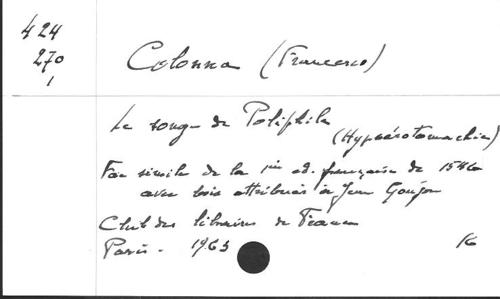 424
270
1
Colonna (Francesco)
Le songe de Poliphile
(Hypnérotomachie)
Fac similé de la 1ère ed. française de 1546
avec bois attribués à Jean Goujon
Club des libraires de France
Paris - 1963
16